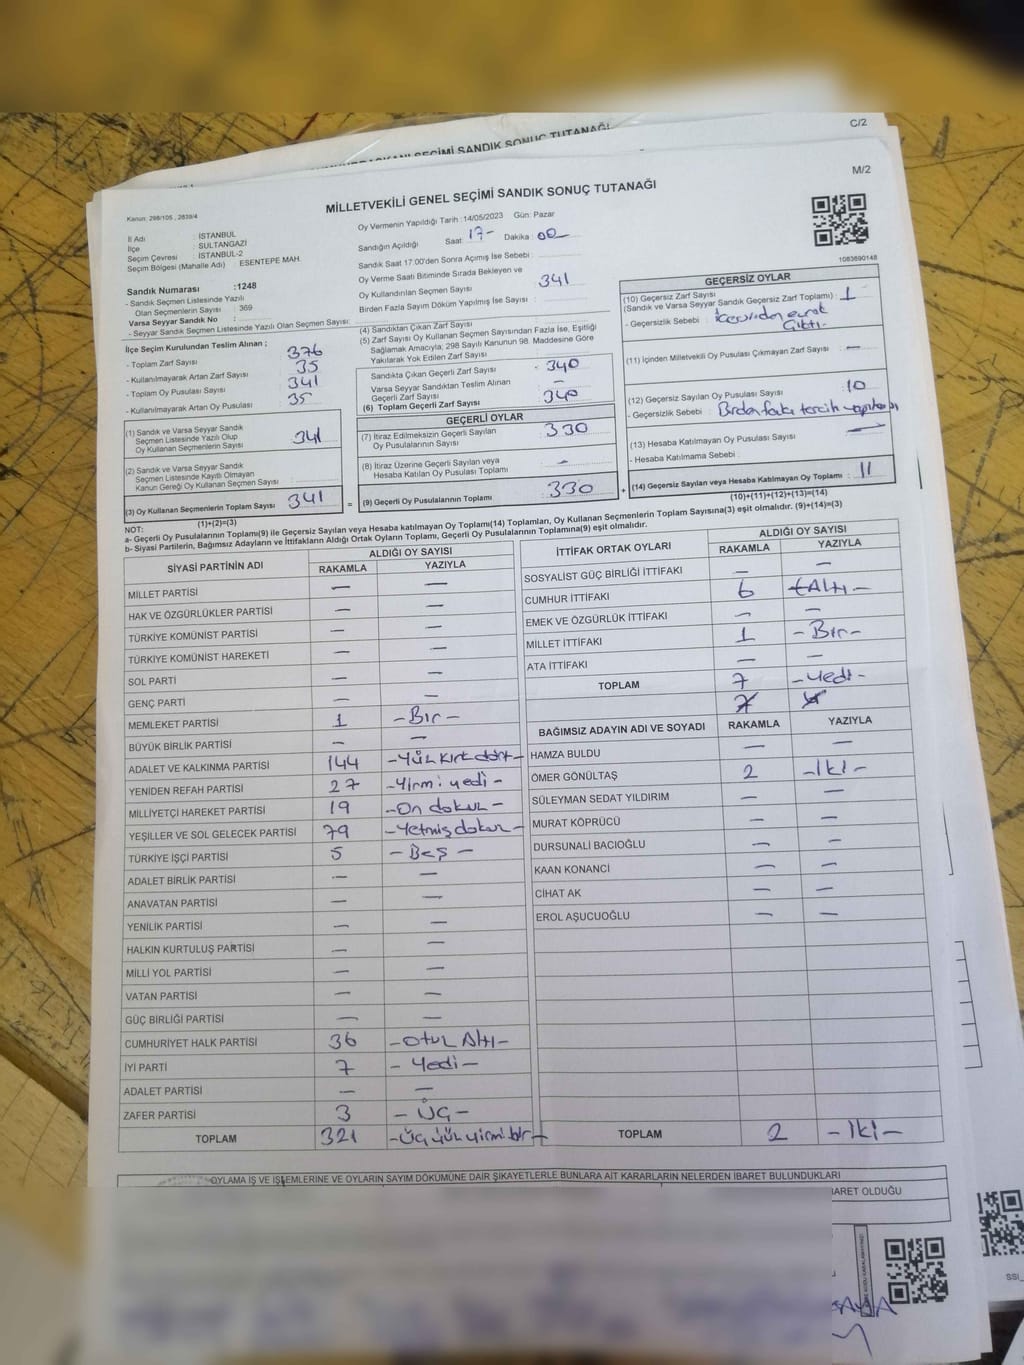 C/2
SEÇİMİ SANDIK SONUÇ TUTANAĞI
M/2
MİLLETVEKİLİ GENEL SEÇİMİ SANDIK SONUÇ TUTANAĞI
Kanun: 298/105 , 2839/4
Oy Vermenin Yapıldığı Tarih : 14/05/2023 Gün: Pazar
İl Adı : İSTANBUL
İlçe : SULTANGAZİ
Seçim Çevresi : İSTANBUL-2
Seçim Bölgesi (Mahalle Adı) : ESENTEPE MAH.
Sandığın Açıldığı Saat: 17- Dakika: 00
Sandık Saat 17.00'den Sonra Açımış İse Sebebi :
Oy Verme Saati Bitiminde Sırada Bekleyen ve
Oy Kullandırılan Seçmen Sayısı : 341
Birden Fazla Sayım Döküm Yapılmış İse Sayısı :
1083690148
Sandık Numarası :1248
- Sandık Seçmen Listesinde Yazılı
Olan Seçmenlerin Sayısı : 369
Varsa Seyyar Sandık No :
- Seyyar Sandık Seçmen Listesinde Yazılı Olan Seçmen Sayısı:
İlçe Seçim Kurulundan Teslim Alınan ;
- Toplam Zarf Sayısı : 376
- Kullanılmayarak Artan Zarf Sayısı : 35
- Toplam Oy Pusulası Sayısı : 341
- Kullanılmayarak Artan Oy Pusulası : 35
(1) Sandık ve Varsa Seyyar Sandık
Seçmen Listesinde Yazılı Olup
Oy Kullanan Seçmenlerin Sayısı : 341
(2) Sandık ve Varsa Seyyar Sandık
Seçmen Listesinde Kayıtlı Olmayan
Kanun Gereği Oy Kullanan Seçmen Sayısı :
(3) Oy Kullanan Seçmenlerin Toplam Sayısı : 341
(1)+(2)=(3)
(4) Sandıktan Çıkan Zarf Sayısı :
(5) Zarf Sayısı Oy Kullanan Seçmen Sayısından Fazla İse, Eşitliği
Sağlamak Amacıyla; 298 Sayılı Kanunun 98. Maddesine Göre
Yakılarak Yok Edilen Zarf Sayısı :
Sandıkta Çıkan Geçerli Zarf Sayısı : 340
Varsa Seyyar Sandıktan Teslim Alınan
Geçerli Zarf Sayısı : —
(6) Toplam Geçerli Zarf Sayısı : 340
GEÇERLİ OYLAR
(7) İtiraz Edilmeksizin Geçerli Sayılan
Oy Pusulasının Sayısı : 330
(8) İtiraz Üzerine Geçerli Sayılan veya
Hesaba Katılan Oy Pusulası Toplamı : —
= (9) Geçerli Oy Pusulalarının Toplamı : 330
GEÇERSİZ OYLAR
(10) Geçersiz Zarf Sayısı
(Sandık ve Varsa Seyyar Sandık Geçersiz Zarf Toplamı) : 1
- Geçersizlik Sebebi : İçerisinden evrak
Çıktı-
(11) İçinden Milletvekili Oy Pusulası Çıkmayan Zarf Sayısı : —
(12) Geçersiz Sayılan Oy Pusulası Sayısı : 10
- Geçersizlik Sebebi : Birden fazla tercih yapılması
(13) Hesaba Katılmayan Oy Pusulası Sayısı : —
- Hesaba Katılmama Sebebi :
+ (14) Geçersiz Sayılan veya Hesaba Katılmayan Oy Toplamı : 11
(10)+(11)+(12)+(13)=(14)
NOT:
a- Geçerli Oy Pusulalarının Toplamı(9) ile Geçersiz veya Hesaba katılmayan Oy Toplamı(14) Toplamları, Oy Kullanan Seçmenlerin Toplam Sayısına(3) eşit olmalıdır. (9)+(14)=(3)
b- Siyasi Partilerin, Bağımsız Adayların ve İttifakların Aldığı Ortak Oyların Toplamı, Geçerli Oy Pusulalarının Toplamına(9) eşit olmalıdır.
SİYASİ PARTİNİN ADI ALDIĞI OY SAYISI
RAKAMLA YAZIYLA
MİLLET PARTİSİ — —
HAK VE ÖZGÜRLÜKLER PARTİSİ — —
TÜRKİYE KOMÜNİST PARTİSİ — —
TÜRKİYE KOMÜNİST HAREKETİ — —
SOL PARTİ — —
GENÇ PARTİ — —
MEMLEKET PARTİSİ 1 -Bir-
BÜYÜK BİRLİK PARTİSİ — —
ADALET VE KALKINMA PARTİSİ 144 -Yüz Kırk dört-
YENİDEN REFAH PARTİSİ 27 -Yirmi yedi-
MİLLİYETÇİ HAREKET PARTİSİ 19 -On dokuz-
YEŞİLLER VE SOL GELECEK PARTİSİ 79 -Yetmiş dokuz-
TÜRKİYE İŞÇİ PARTİSİ 5 -Beş-
ADALET BİRLİK PARTİSİ — —
ANAVATAN PARTİSİ — —
YENİLİK PARTİSİ — —
HALKIN KURTULUŞ PARTİSİ — —
MİLLİ YOL PARTİSİ — —
VATAN PARTİSİ — —
GÜÇ BİRLİĞİ PARTİSİ — —
CUMHURİYET HALK PARTİSİ 36 -Otuz Altı-
İYİ PARTİ 7 -Yedi-
ADALET PARTİSİ — —
ZAFER PARTİSİ 3 -Üç-
TOPLAM 321 -Üç yüz yirmi bir-
İTTİFAK ORTAK OYLARI ALDIĞI OY SAYISI
RAKAMLA YAZIYLA
SOSYALİST GÜÇ BİRLİĞİ İTTİFAKI — —
CUMHUR İTTİFAKI 6 -Altı-
EMEK VE ÖZGÜRLÜK İTTİFAKI — —
MİLLET İTTİFAKI 1 -Bir-
ATA İTTİFAKI — —
TOPLAM 7 -Yedi-
7
BAĞIMSIZ ADAYIN ADI VE SOYADI RAKAMLA YAZIYLA
HAMZA BULDU — —
ÖMER GÖNÜLTAŞ 2 -İki-
SÜLEYMAN SEDAT YILDIRIM — —
MURAT KÖPRÜCÜ — —
DURSUNALİ BACIOĞLU — —
KAAN KONANCİ — —
CİHAT AK — —
EROL AŞUCUOĞLU — —
TOPLAM 2 -İki-
OYLAMA İŞ VE İŞLEMLERİNE VE OYLARIN SAYIM DÖKÜMÜNE DAİR ŞİKAYETLERLE BUNLARA AİT KARARLARIN NELERDEN İBARET BULUNDUKLARI
BARET OLDUĞU
SSİ_